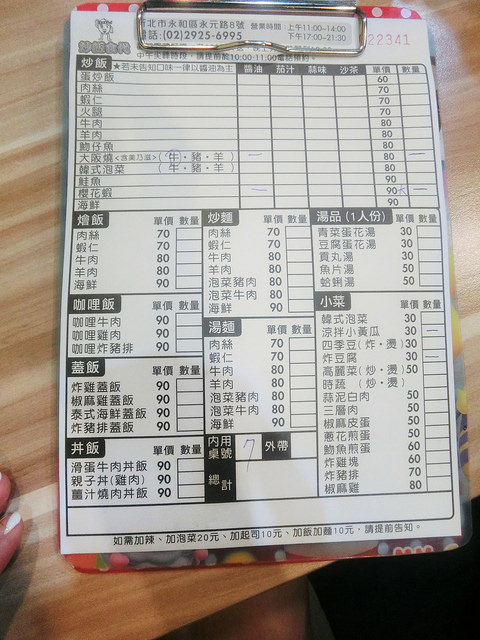 新北市永和區永元路8號 營業時間：上午11:00~14:00
電話：(02)2925-6995 下午17:00~21:30
22341
炒飯 ★若未告知口味一律以醬油為主 醬油 茄汁 蒜味 沙茶 單價 數量
蛋炒飯 60
肉絲 70
蝦仁 70
火腿 70
牛肉 80
羊肉 80
魩仔魚 80
大阪燒<含美乃滋>(牛・豬・羊) 80
韓式泡菜 (牛・豬・羊) 80
鮭魚 90
櫻花蝦 90
海鮮 90
燴飯 單價 數量
肉絲 70
蝦仁 70
牛肉 80
羊肉 80
海鮮 90
咖哩飯 單價 數量
咖哩牛肉 90
咖哩雞肉 90
咖哩炸豬排 90
蓋飯 單價 數量
炸雞蓋飯 90
椒麻雞蓋飯 90
泰式海鮮蓋飯 90
炸豬排蓋飯 90
丼飯 單價 數量
滑蛋牛肉丼飯 90
親子丼(雞肉) 90
薑汁燒肉丼飯 90
炒麵 單價 數量
肉絲 70
蝦仁 70
牛肉 80
羊肉 80
泡菜豬肉 80
泡菜牛肉 80
海鮮 90
湯麵 單價 數量
肉絲 70
蝦仁 70
牛肉 80
羊肉 80
泡菜豬肉 80
泡菜牛肉 80
海鮮 90
內用桌號 7 外帶
總計
湯品(1人份) 單價 數量
青菜蛋花湯 30
豆腐蛋花湯 30
貢丸湯 30
魚片湯 50
蛤蜊湯 50
小菜 單價 數量
韓式泡菜 30
涼拌小黃瓜 30
四季豆(炸・燙) 30
炸豆腐 30
高麗菜(炒・燙) 50
時蔬 (炒・燙)
蒜泥白肉 50
三層肉 50
椒麻皮蛋 50
蔥花煎蛋 50
魩魚煎蛋 50
炸雞塊 60
炸豬排 70
椒麻雞 80
如需加辣、加泡菜20元、加起司10元、加飯加麵10元，請提前告知。